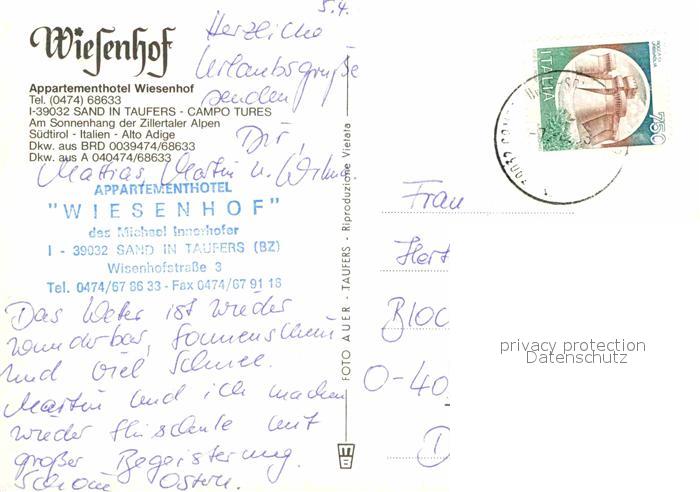 5.4.
Wiesenhof
Appartementhotel Wiesenhof
Tel. (0474) 68633
I-39032 SAND IN TAUFERS - CAMPO TURES
Am Sonnenhang der Zillertaler Alpen
Südtirol - Italien - Alto Adige
Dkw. aus BRD 0039474/68633
Dkw. aus A 040474/68633
Herzliche
Urlaubsgrüße
senden
Dir,
Mattias, Martin u.
APPARTEMENTHOTEL
"WIESENHOF"
des Michael Innerhofer
I - 39032 SAND IN TAUFERS (BZ)
Wisenhofstraße 3
Tel. 0474/67 86 33 - Fax 0474/67 91 18
Das Wetter ist wieder
wunderbar, Sonnenschein
und viel Schnee.
Martin und ich machen
wieder Skischule mit
großer Begeisterung.
Schöne Ostern.
FOTO AUER - TAUFERS - Riproduzione Vietata
ITALIA
750
Frau
Hert
BLOC
O-40
D
privacy protection
Datenschutz